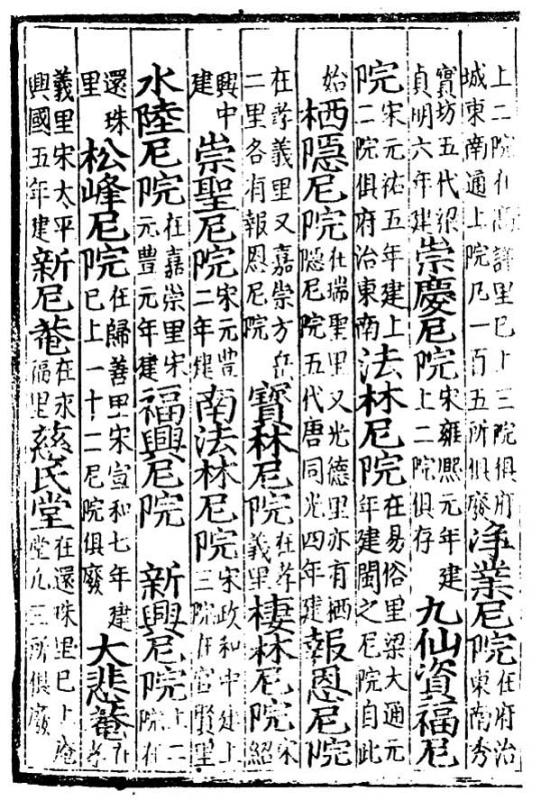 上二院在高詳里已上三院俱府城東南通上院乃一百五所俱廢淨業尼院在府治東南秀
寶坊五代梁貞明六年建崇慶尼院宋雍熙元年建上二院俱存九仙資福尼
院宋元祐五年建上二院俱府治東南法林尼院在易俗里梁大通元年建閩之尼院自此
始栖隱尼院在瑞聖里又光德里亦有栖隱尼院五代唐同光四年建報恩尼院
在孝義里又嘉崇方岳二里各有報恩尼院寶林尼院在孝義里棲林尼院宋紹
興中建崇聖尼院宋元豐二年建南法林尼院宋政和中建上三院在宣賢里
水陸尼院在嘉崇里宋元豐元年建福興尼院 新興尼院上二院在
還珠里松峰尼院在歸善里宋宣和七年建已上一十二尼院俱廢大悲菴在孝
義里宋太平興國五年建新尼菴在永福里慈氏堂在還珠里已上庵堂凡三所俱廢